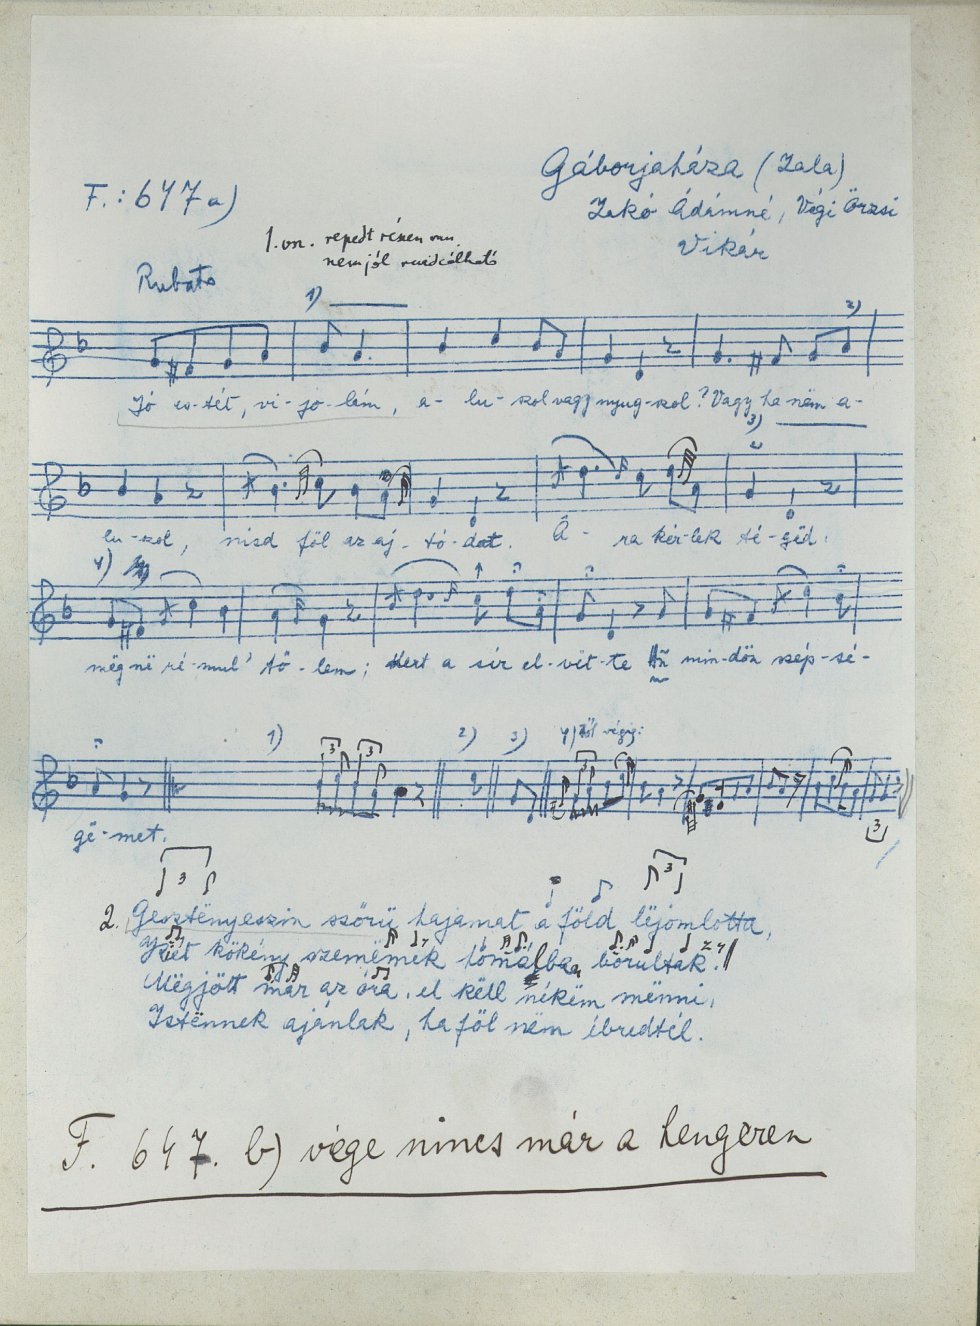 F.: 647 a)
Gáborjaháza (Zala)
Jakó Ádámné, Végi Örzsi
Vikár
1. vn. repedt részen van,
nem jól
Rubato
1)
2)
Jó es-tét, vi-jo-lám, a-lu-szol vagy nyug-szol? Vagy ha nëm a-
3)
lu-szol, nisd föl az aj-tó-dat. Á-ra kér-lek té-gëd!
4)
mëg në ré-mul' tő-lem; Mert a sír el-vit-te min-dön szép-sé-
1) 2) 3) 4) től végig:
gë-met.
3 3 3 3
3 3
2. Gesztënyeszin szőrü hajamat a föld lëjomlotta,
Két kökény szemëmek homályba borultak.
Mëgjött már az óra, el këll nékëm mënni,
Istënnek ajánlak, ha föl nëm ébredtél.
F. 647. b) vége nincs már a hengeren